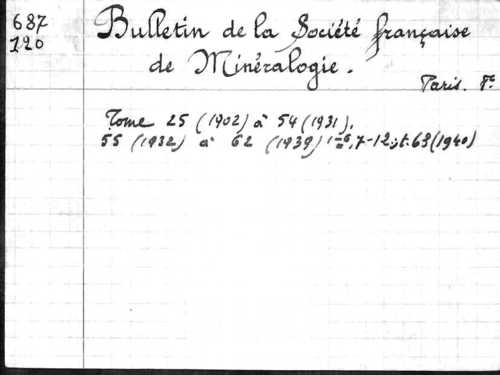 687
120
Bulletin de la Société française
de Minéralogie.
Paris. F.e
Tome 25 (1902) à 54 (1931).
55 (1932) à 62 (1939) 1-6, 7-12; t. 63 (1940)